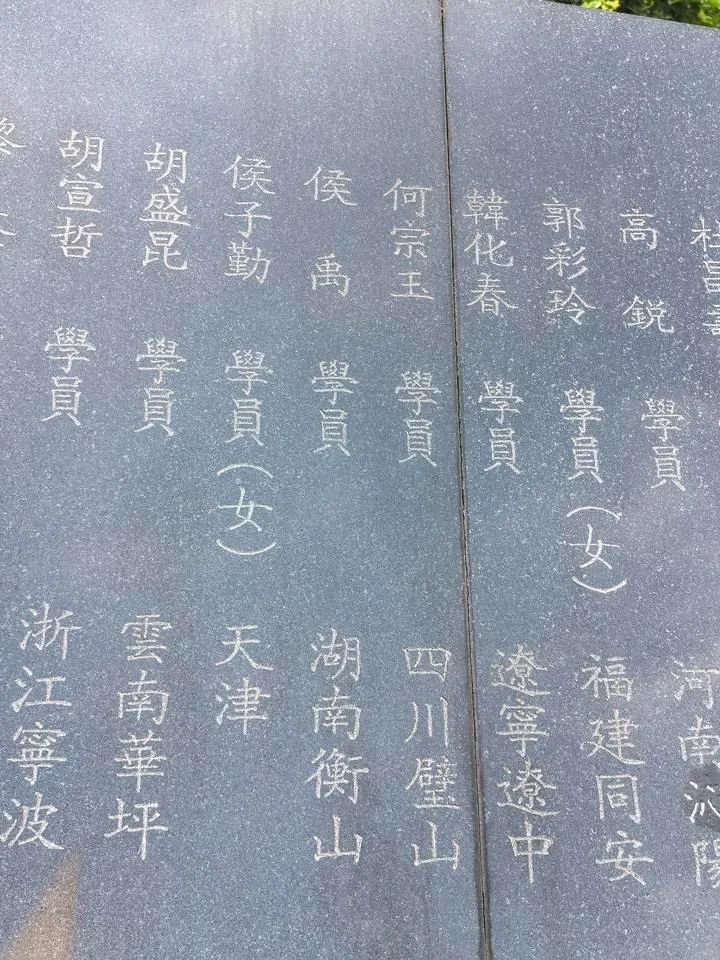 杜昌壽
高 鋭 學員 河南沁陽
郭彩玲 學員（女） 福建同安
韓化春 學員 遼寧遼中
何宗玉 學員 四川璧山
侯 禹 學員 湖南衡山
侯子勤 學員（女） 天津
胡盛昆 學員 雲南華坪
胡宣哲 學員 浙江寧波
黎